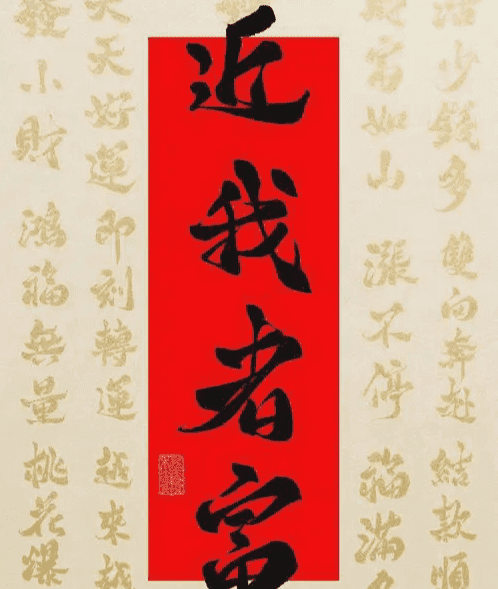 活少錢多 雙向奔赴 結款順
富如山 漲不停 福滿
近我者富
天天好運 即刻轉運 越來越
發小財 鴻福無量 桃花爆